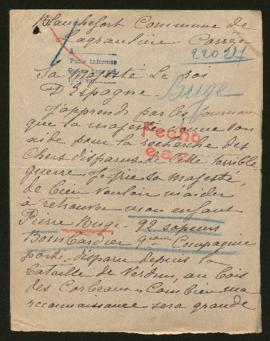 Blanchefort Commune de
Lagraulière Corrèze
Pour Informe
Sa Majesté Le roi
D'Espagne
Buge
J'apprends par les journaux
que sa majesté donne son
aide pour la recherche des
Chers disparus de cette terrible
guerre
sa Majesté,
de bien vouloir m'aider
à retrouver mon enfant
Pierre Buge. 92 sapeurs
Bombardier Compagnie
porté disparu depuis la
bataille de Verdun, au bois
des Corbeaux. Combien ma
reconnaissance sera grande